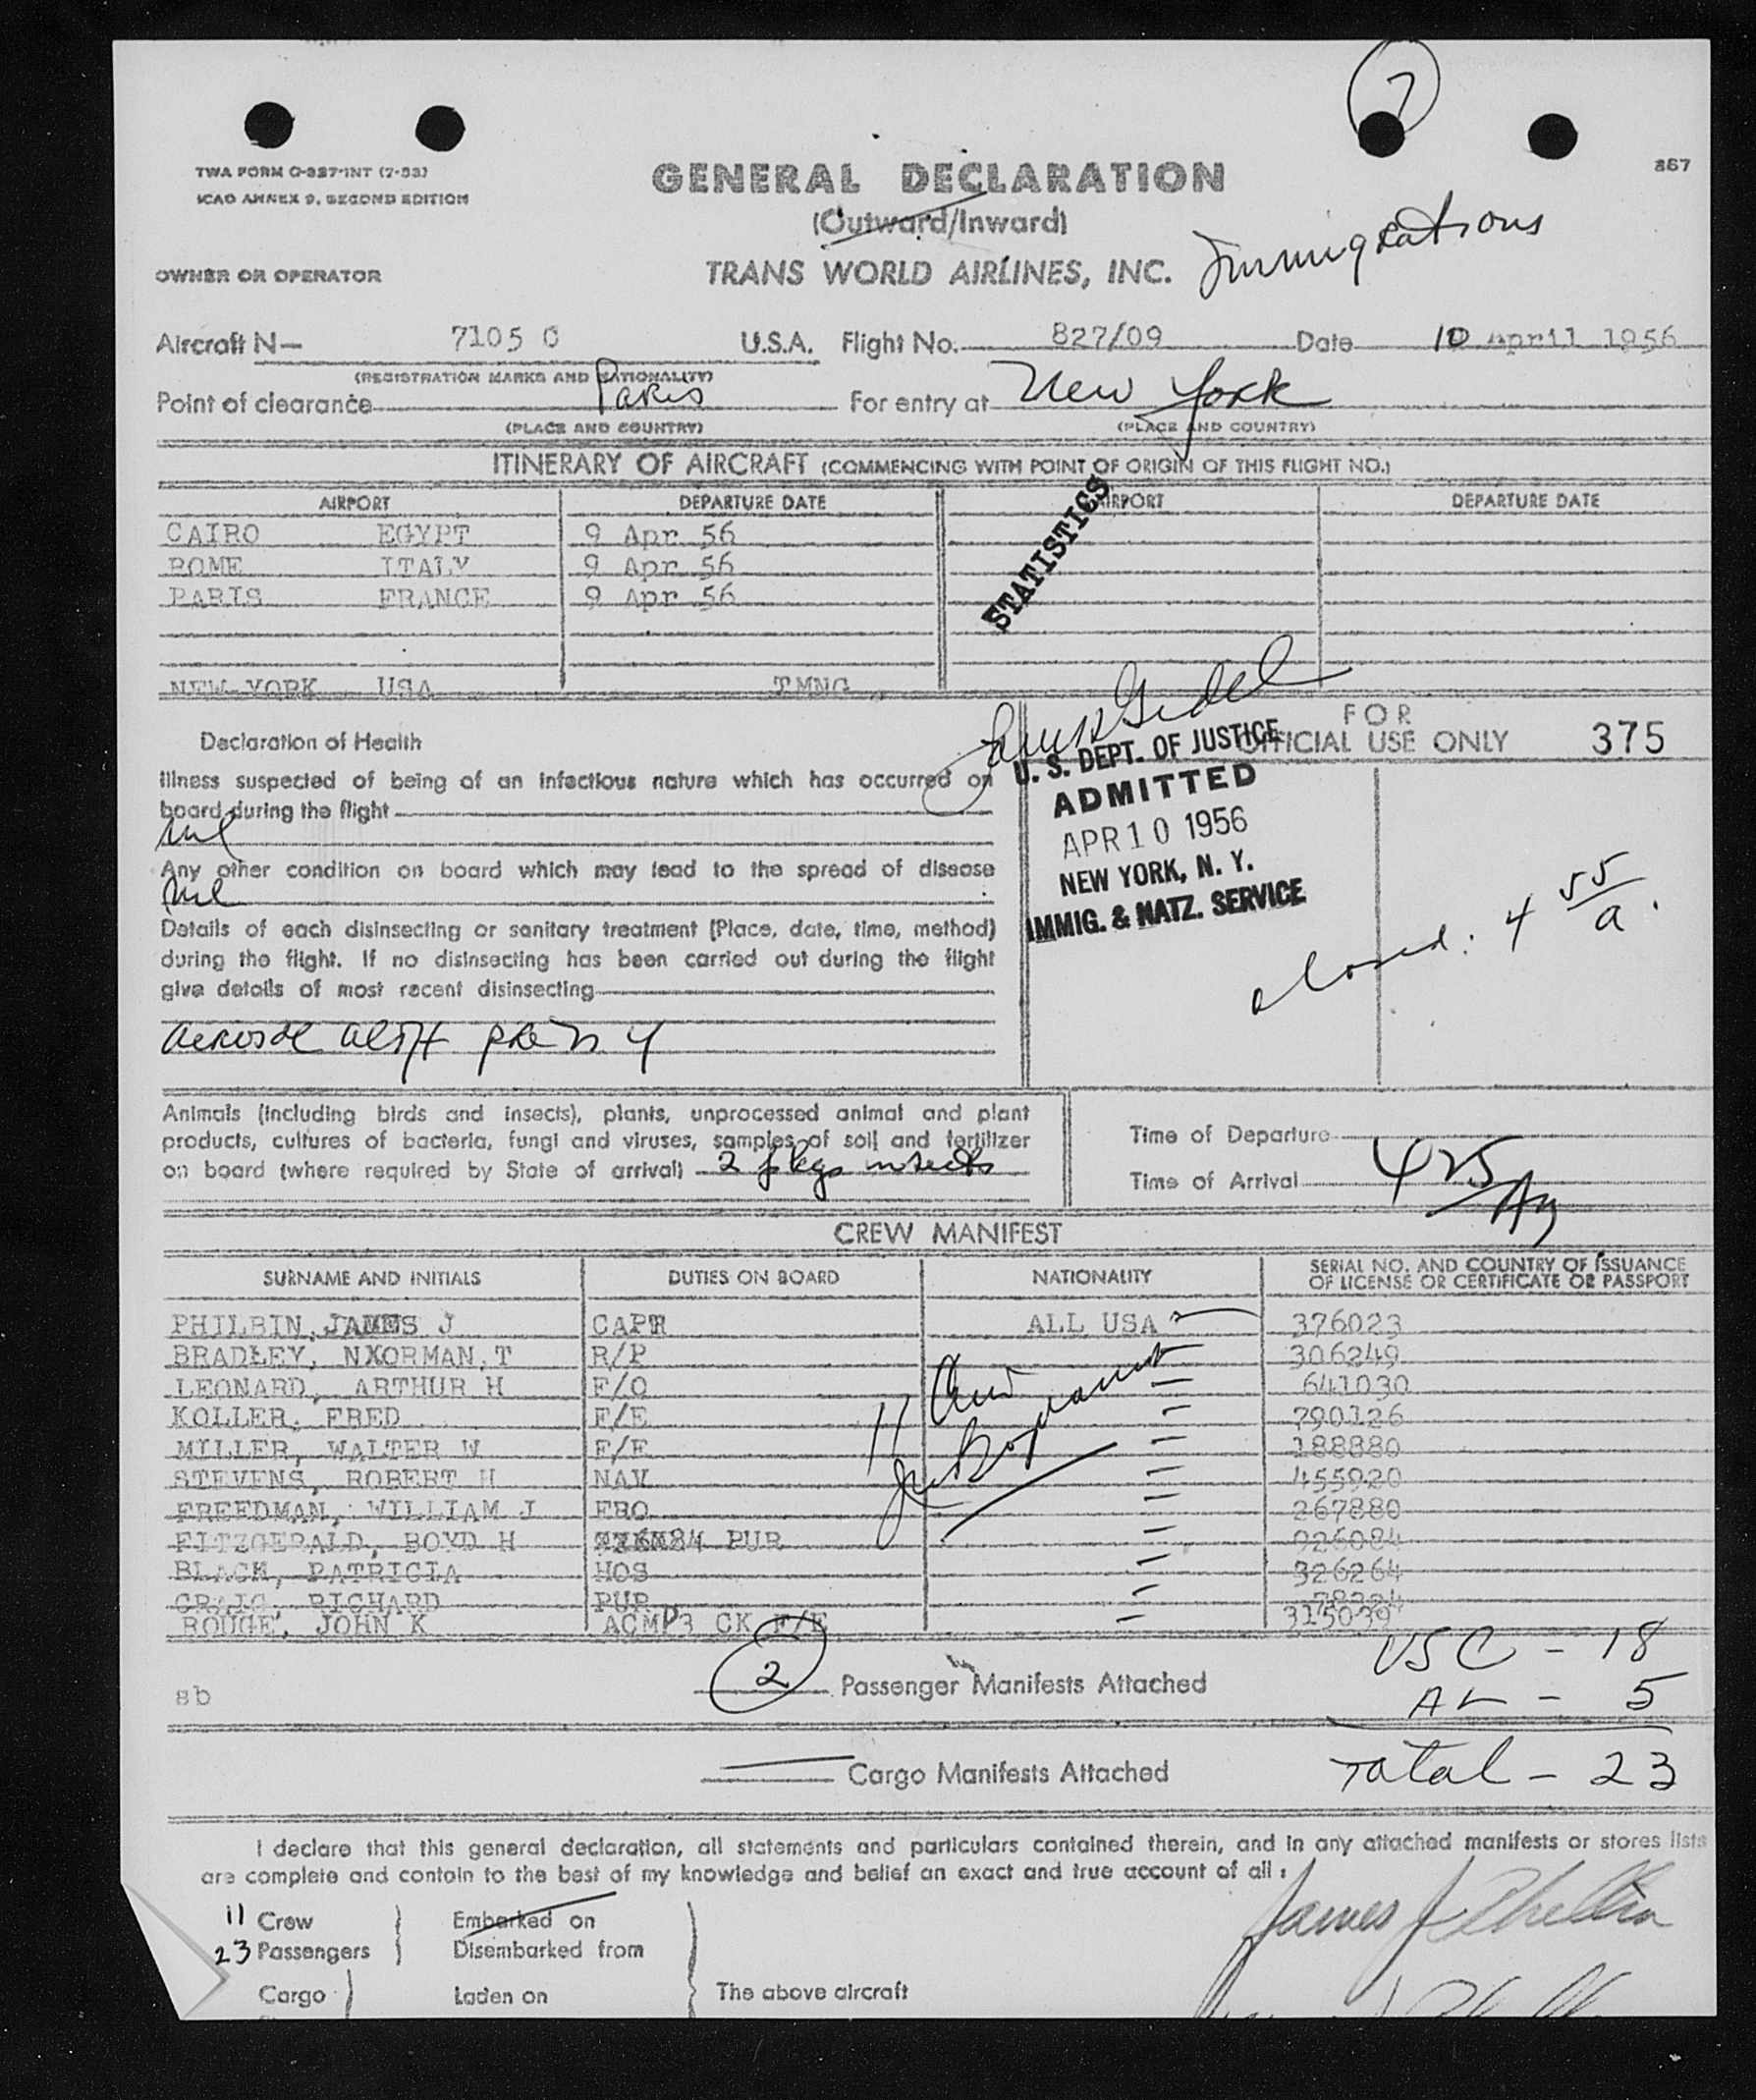 7
TWA FORM O-327-INT (7-53)
ICAO ANNEX 9, SECOND EDITION
867
GENERAL DECLARATION
(Outward/Inward)
Immigrations
OWNER OR OPERATOR
TRANS WORLD AIRLINES, INC.
Aircraft N— 7105 C U.S.A. Flight No. 827/09 Date 10 April 1956
(REGISTRATION MARKS AND NATIONALITY)
Point of clearance Paris For entry at New York
(PLACE AND COUNTRY) (PLACE AND COUNTRY)
ITINERARY OF AIRCRAFT (COMMENCING WITH POINT OF ORIGIN OF THIS FLIGHT NO.)
AIRPORT DEPARTURE DATE AIRPORT DEPARTURE DATE
STATISTICS
CAIRO EGYPT 9 Apr 56
ROME ITALY 9 Apr 56
PARIS FRANCE 9 Apr 56
NEW YORK USA TMNG
FOR
OFFICIAL USE ONLY 375
Declaration of Health
Illness suspected of being of an infectious nature which has occurred on
board during the flight
nil
Any other condition on board which may lead to the spread of disease
nil
Details of each disinsecting or sanitary treatment (Place, date, time, method)
during the flight. If no disinsecting has been carried out during the flight
give details of most recent disinsecting
aerosol
U. S. DEPT. OF JUSTICE
ADMITTED
APR 10 1956
NEW YORK, N. Y.
IMMIG. & NATZ. SERVICE
closed: 4 55/a.
Animals (including birds and insects), plants, unprocessed animal and plant
products, cultures of bacteria, fungi and viruses, samples of soil and fertilizer
on board (where required by State of arrival) 2 pkgs insects
Time of Departure
Time of Arrival 425 AM
CREW MANIFEST
SURNAME AND INITIALS DUTIES ON BOARD NATIONALITY SERIAL NO. AND COUNTRY OF ISSUANCE
OF LICENSE OR CERTIFICATE OR PASSPORT
PHILBIN, JAMES J CAPT ALL USA 376023
BRADLEY, NXORMAN T R/P 306249
LEONARD, ARTHUR H F/O 641030
KOLLER, FRED F/E 790126
MILLER, WALTER W F/E 188880
STEVENS, ROBERT H NAV 455920
FREEDMAN, WILLIAM J FRO 267880
FITZGERALD, BOYD H PUR 926084
BLACK, PATRICIA HOS 326264
CRAIG, RICHARD PUR
ROUGE, JOHN K ACMP3 CK F/E 315039
11
sb
2 Passenger Manifests Attached
USC - 18
AL - 5
Cargo Manifests Attached
Total - 23
I declare that this general declaration, all statements and particulars contained therein, and in any attached manifests or stores lists
are complete and contain to the best of my knowledge and belief an exact and true account of all:
11 Crew Embarked on
23 Passengers Disembarked from
James J Philbin
Cargo Laden on The above aircraft